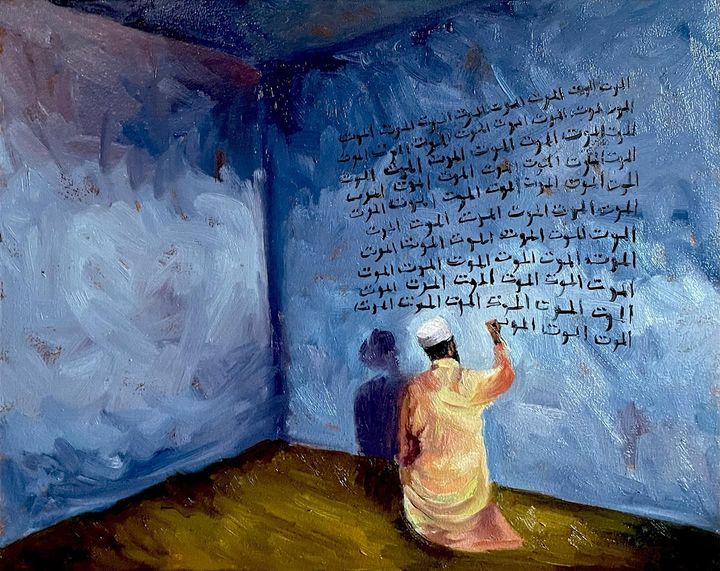 الموت الموت الموت الموت الموت الموت الموت الموت
الموت الموت الموت الموت الموت الموت الموت الموت
الموت الموت الموت الموت الموت الموت الموت
الموت الموت الموت الموت الموت الموت الموت
الموت الموت الموت الموت الموت الموت الموت
الموت الموت الموت الموت الموت الموت
الموت الموت الموت الموت الموت الموت
الموت الموت الموت الموت الموت الموت
الموت الموت الموت الموت الموت الموت
الموت الموت الموت الموت الموت الموت
الموت الموت الموت